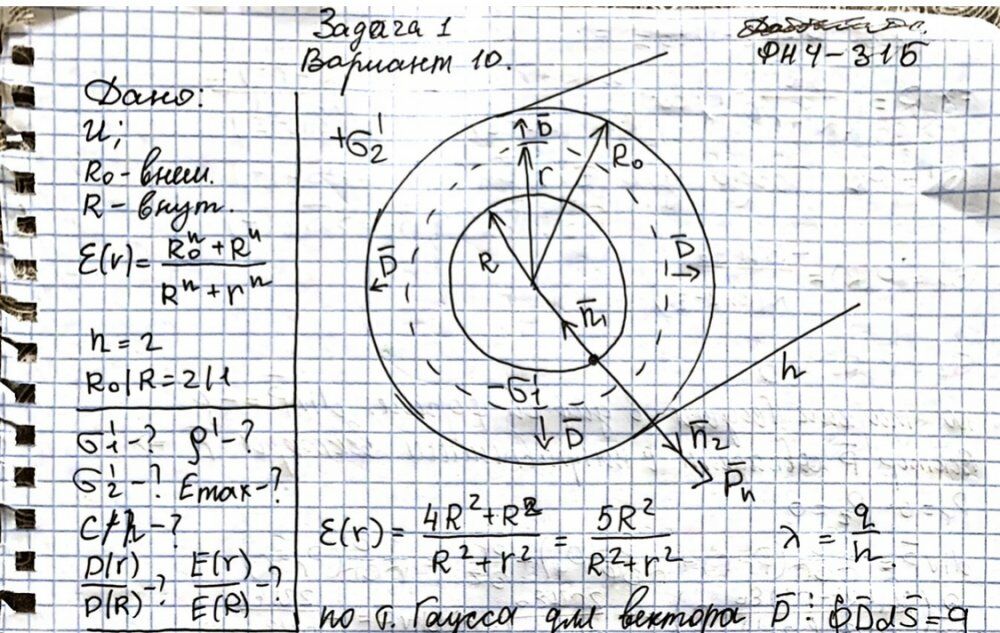 Задача 1
Вариант 10.
ФН4-31Б
Дано:
U;
R₀ - внеш.
R - внут.
ε(r) = (R₀ⁿ + Rⁿ) / (Rⁿ + rⁿ)
n = 2
R₀/R = 2/1
σ₁' - ? ρ' - ?
σ₂' - ? Emax - ?
C/h - ?
D(r)/D(R) - ? E(r)/E(R) - ?
+σ₂'
D̄
R₀
r
D̄
R
D̄
n̄₁
-σ₁'
h
D̄
n̄₂
P̄n
ε(r) = (4R² + R²) / (R² + r²) = 5R² / (R² + r²) λ = q/h
по т. Гаусса для вектора D̄: ∮D̄dS̄ = q